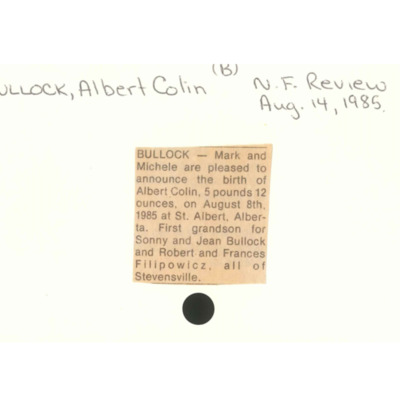 (B)
BULLOCK, Albert Colin
N.F. Review
Aug. 14, 1985.
BULLOCK — Mark and
Michele are pleased to
announce the birth of
Albert Colin, 5 pounds 12
ounces, on August 8th,
1985 at St. Albert, Alber-
ta. First grandson for
Sonny and Jean Bullock
and Robert and Frances
Filipowicz, all of
Stevensville.